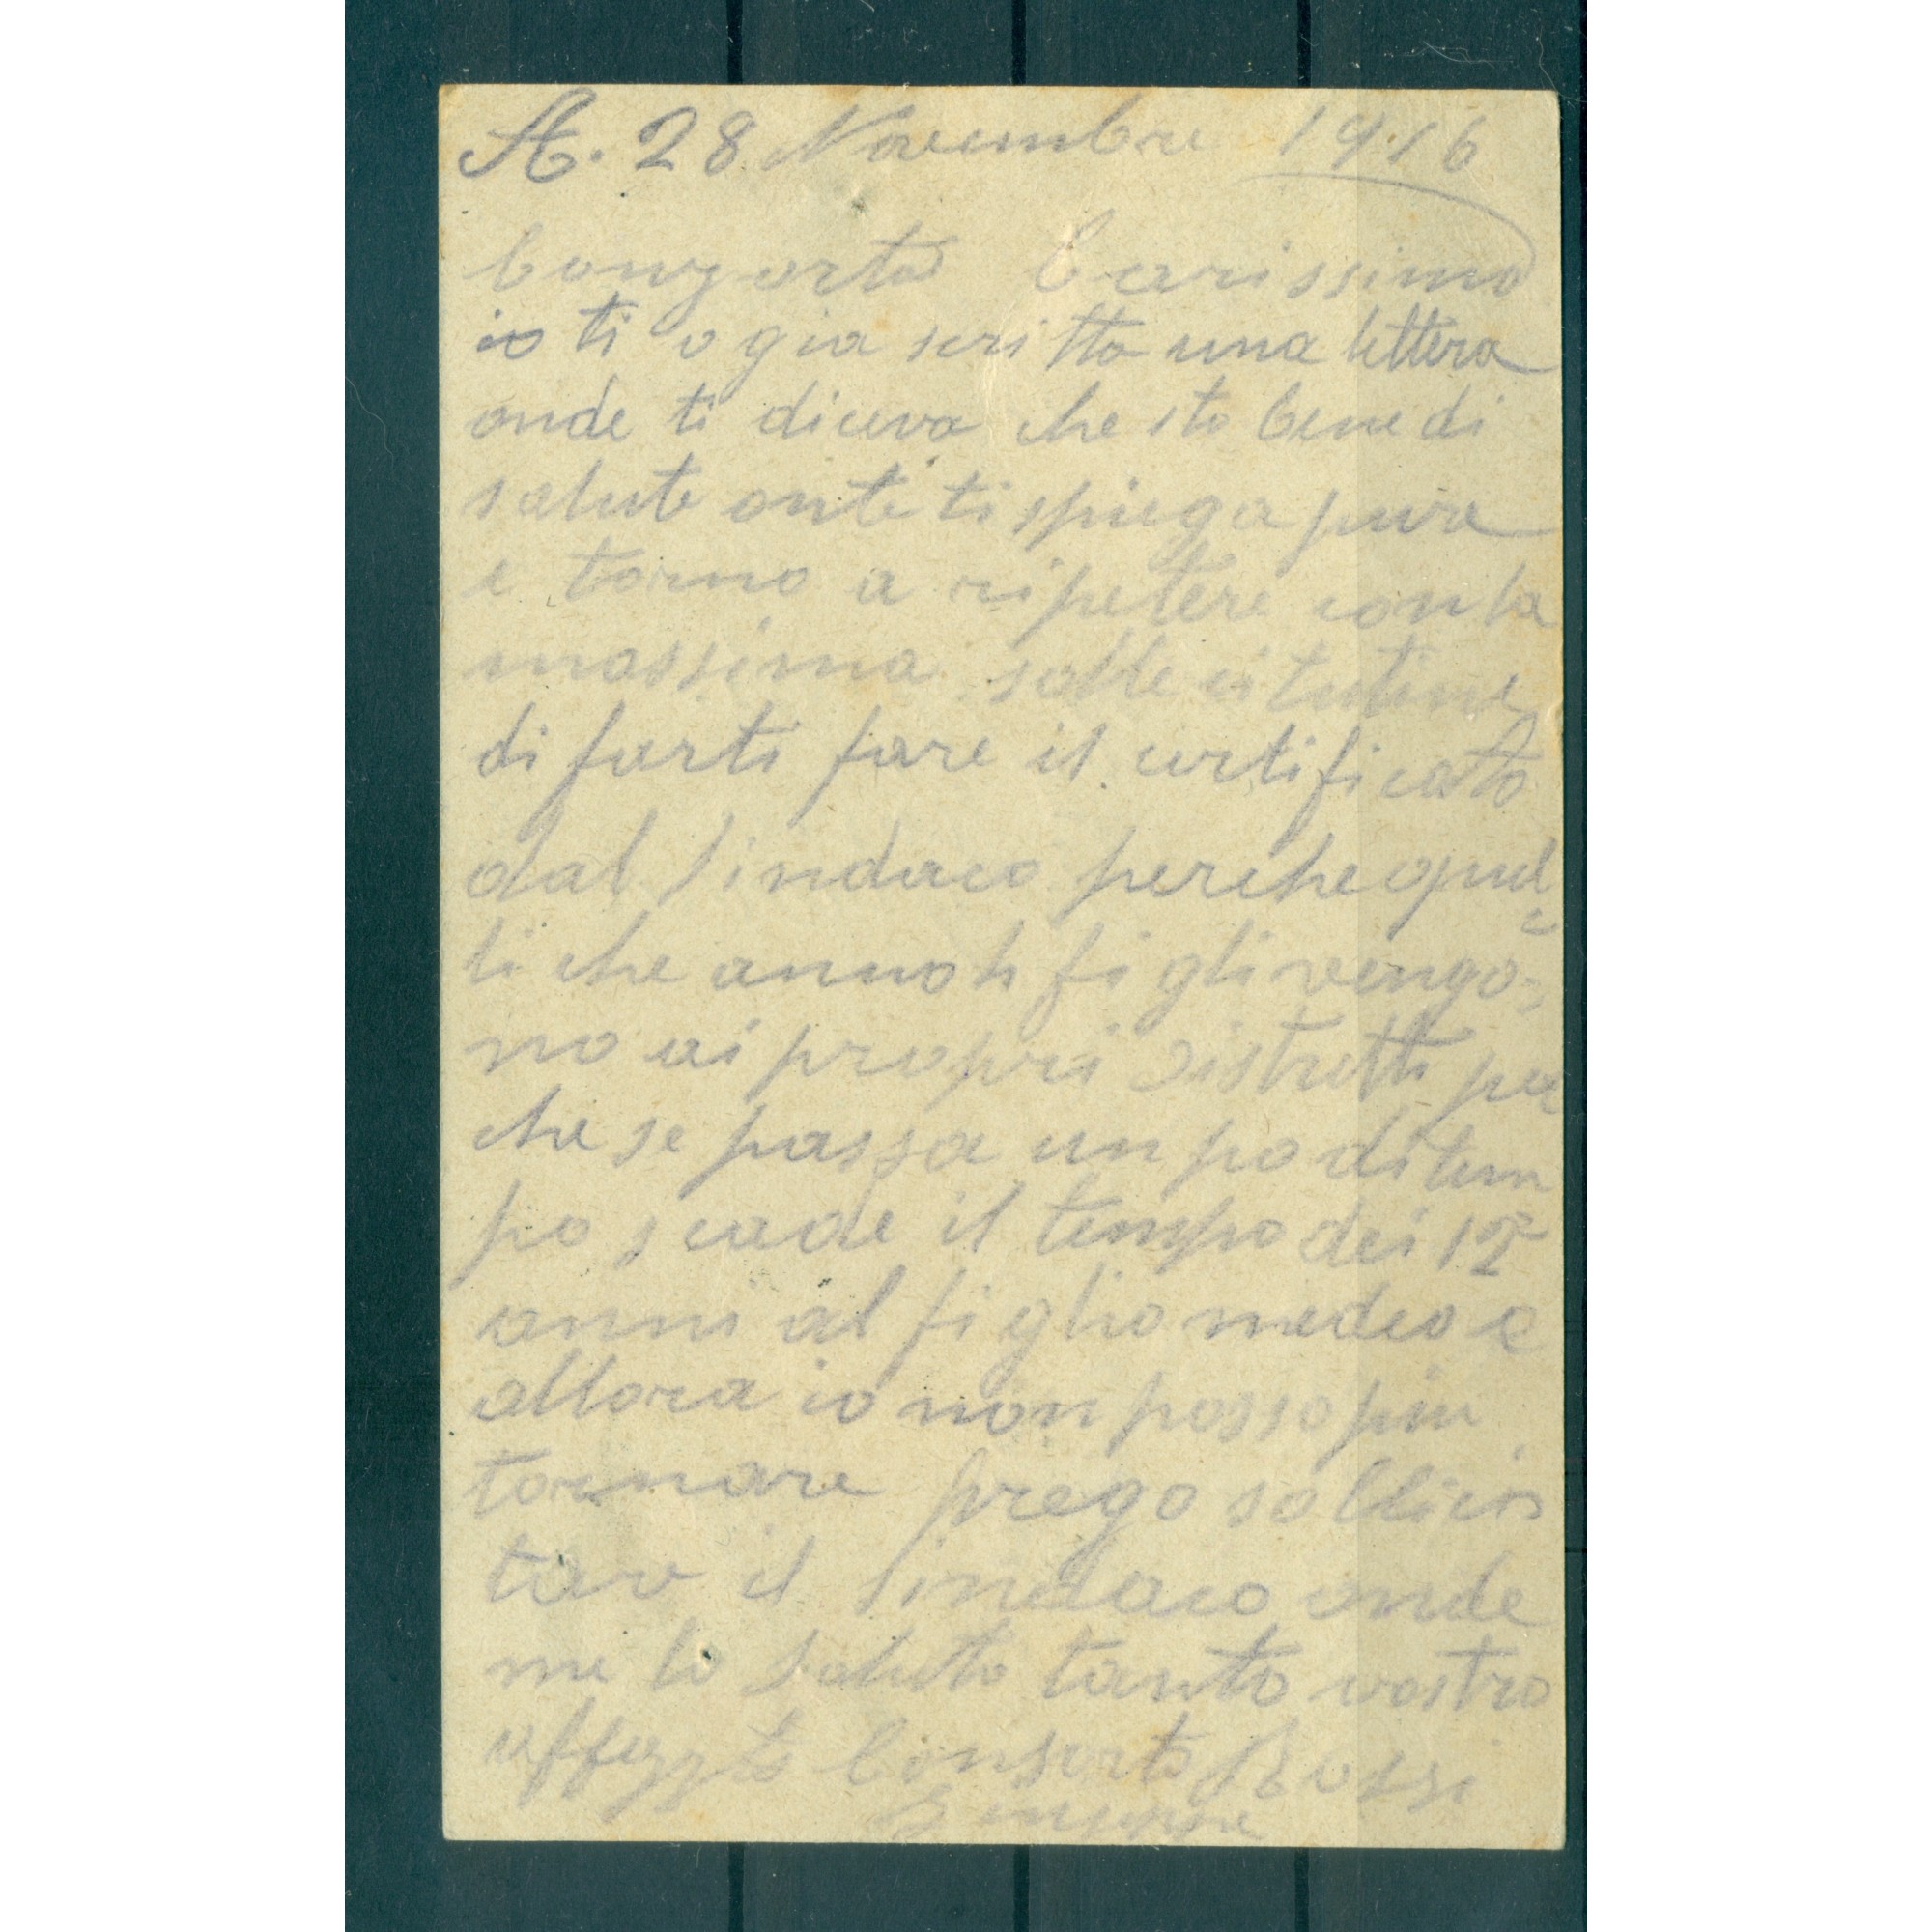 A. 28 Novembre 1916
Consorte Carissimo
io ti o gia scritto una lettera
onde ti diceva che sto bene di
salute onte ti spiega pura
e torno a ripetere con la
massima sollecitutine
di farti fare il certificato
dal Sindaco perche quel
li che anno 4 figli vengo=
no ai propri Distretti per
che se passa un po di tem
po scade il tempo dei 12
anni al figlio medeo e
allora io non posso piu
tornare prego sollicis
tar il Sindaco onde
me lo saluto tanto vostro
affezzto Consorto Rossi
Giuseppe